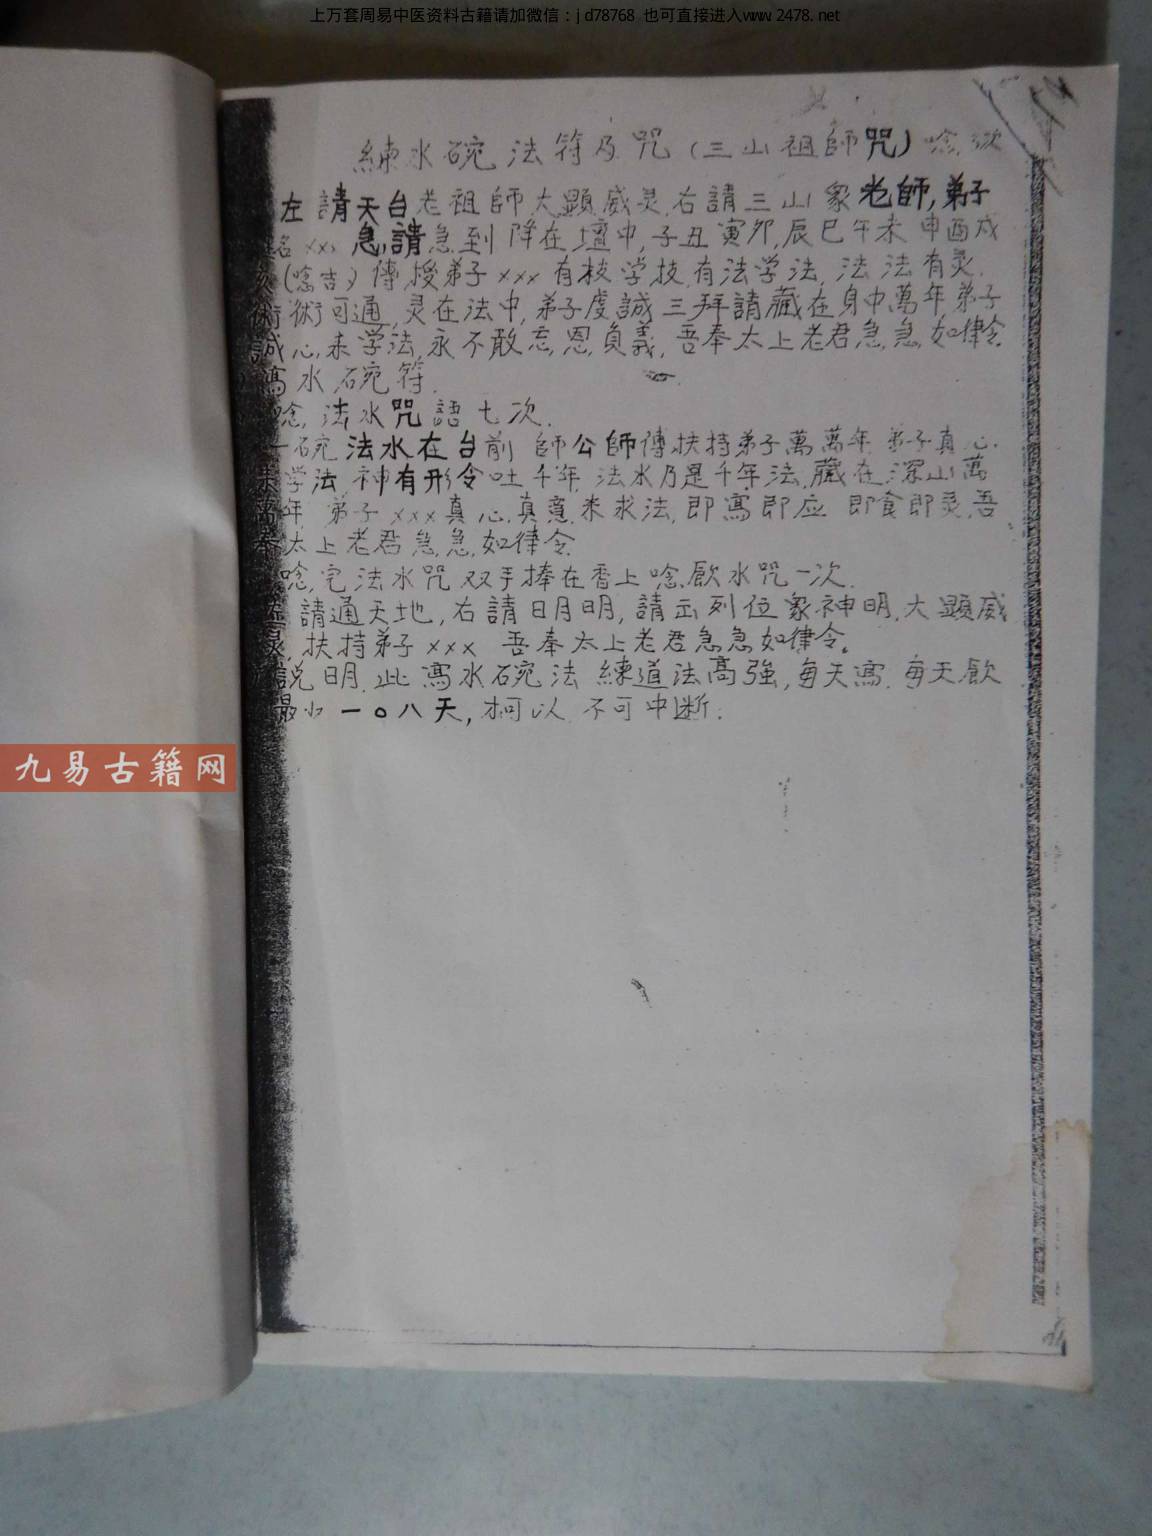 上万套周易中医资料古籍请加微信：jd78768 也可直接进入www.2478.net
練水碗法符及咒（三山祖師咒）唸
左請天台老祖師大顯威灵，右請三山衆老師，弟子
名 xxx 急請急到降在壇中，子丑寅卯，辰巳午未申酉戌
（唸吉）傳授弟子xxx有技学技，有法学法，法法有灵，
術術可通，灵在法中，弟子虔誠三拜請藏在身中萬年，弟子
誠心来学法，永不敢忘恩負義，吾奉太上老君急急如律令
寫水碗符．
唸，法水咒語七次．
一碗法水在台前 師公師傳扶持弟子萬萬年 弟子真心
来学法 神有形令吐千年，法水乃是千年法，藏在深山萬
萬年，弟子xxx真心真意来求法，即寫即应 即食即灵，吾
奉太上老君急急如律令
唸完法水咒双手捧在香上唸飲水咒一次．
請通天地，右請日月明，請 列位衆神明，大顯威
灵，扶持弟子xxx 吾奉太上老君急急如律令。
説明，此寫水碗法 練道法高強，每天寫，每天飲
最少一〇八天，才可以，不可中断．
九易古籍网